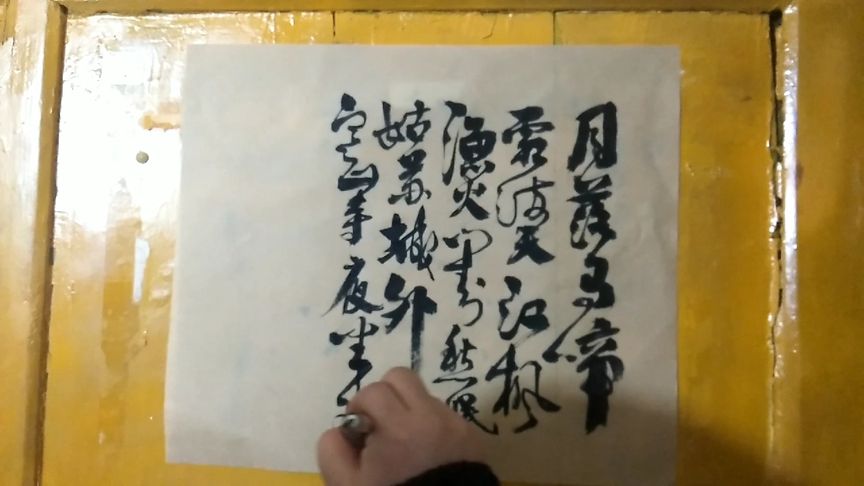 月落乌啼
霜满天江枫
渔火对愁眠
姑苏城外
寒山寺夜半